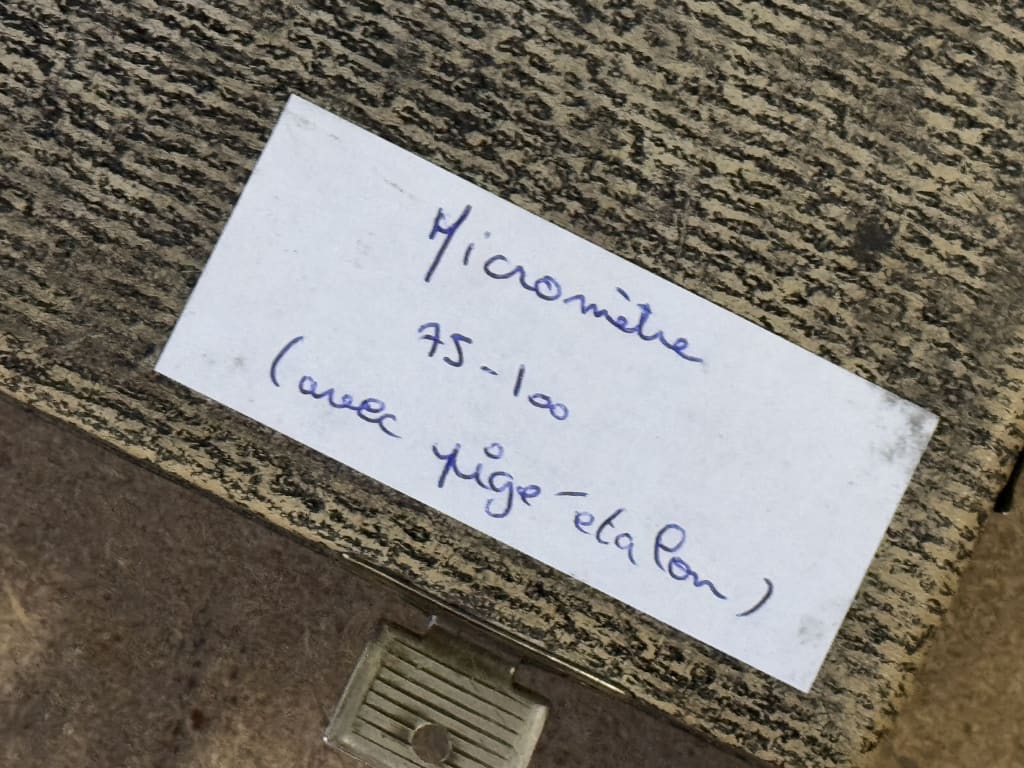 Micromètre
75-100
(avec pige-etalon)